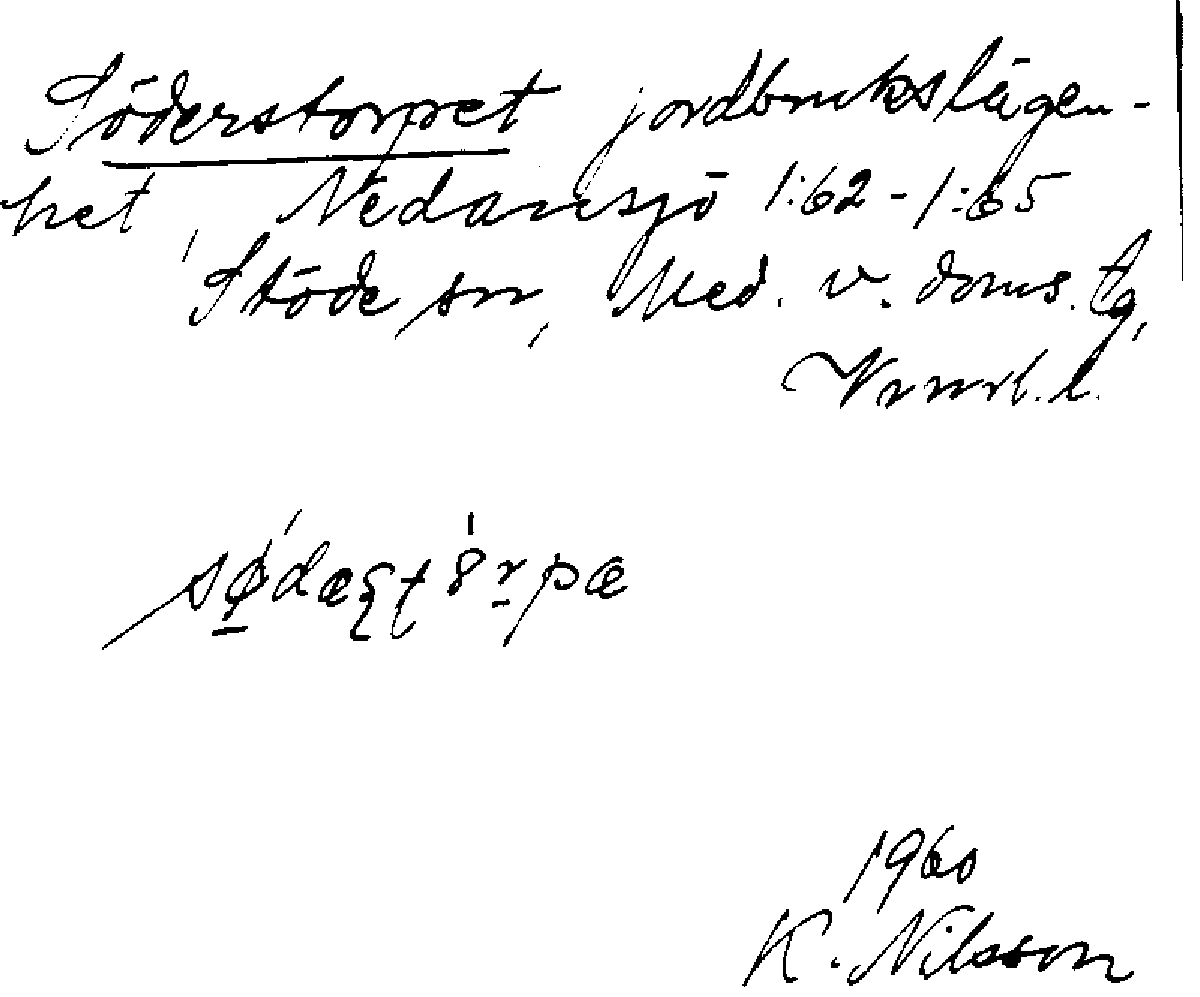 Söderstorpet jordbrukslägen-
het, Nedansjö 1:62-1:65
Stöde sn, Med. v. doms. tg,
Vnorl. l.
1960
K. Nilsson